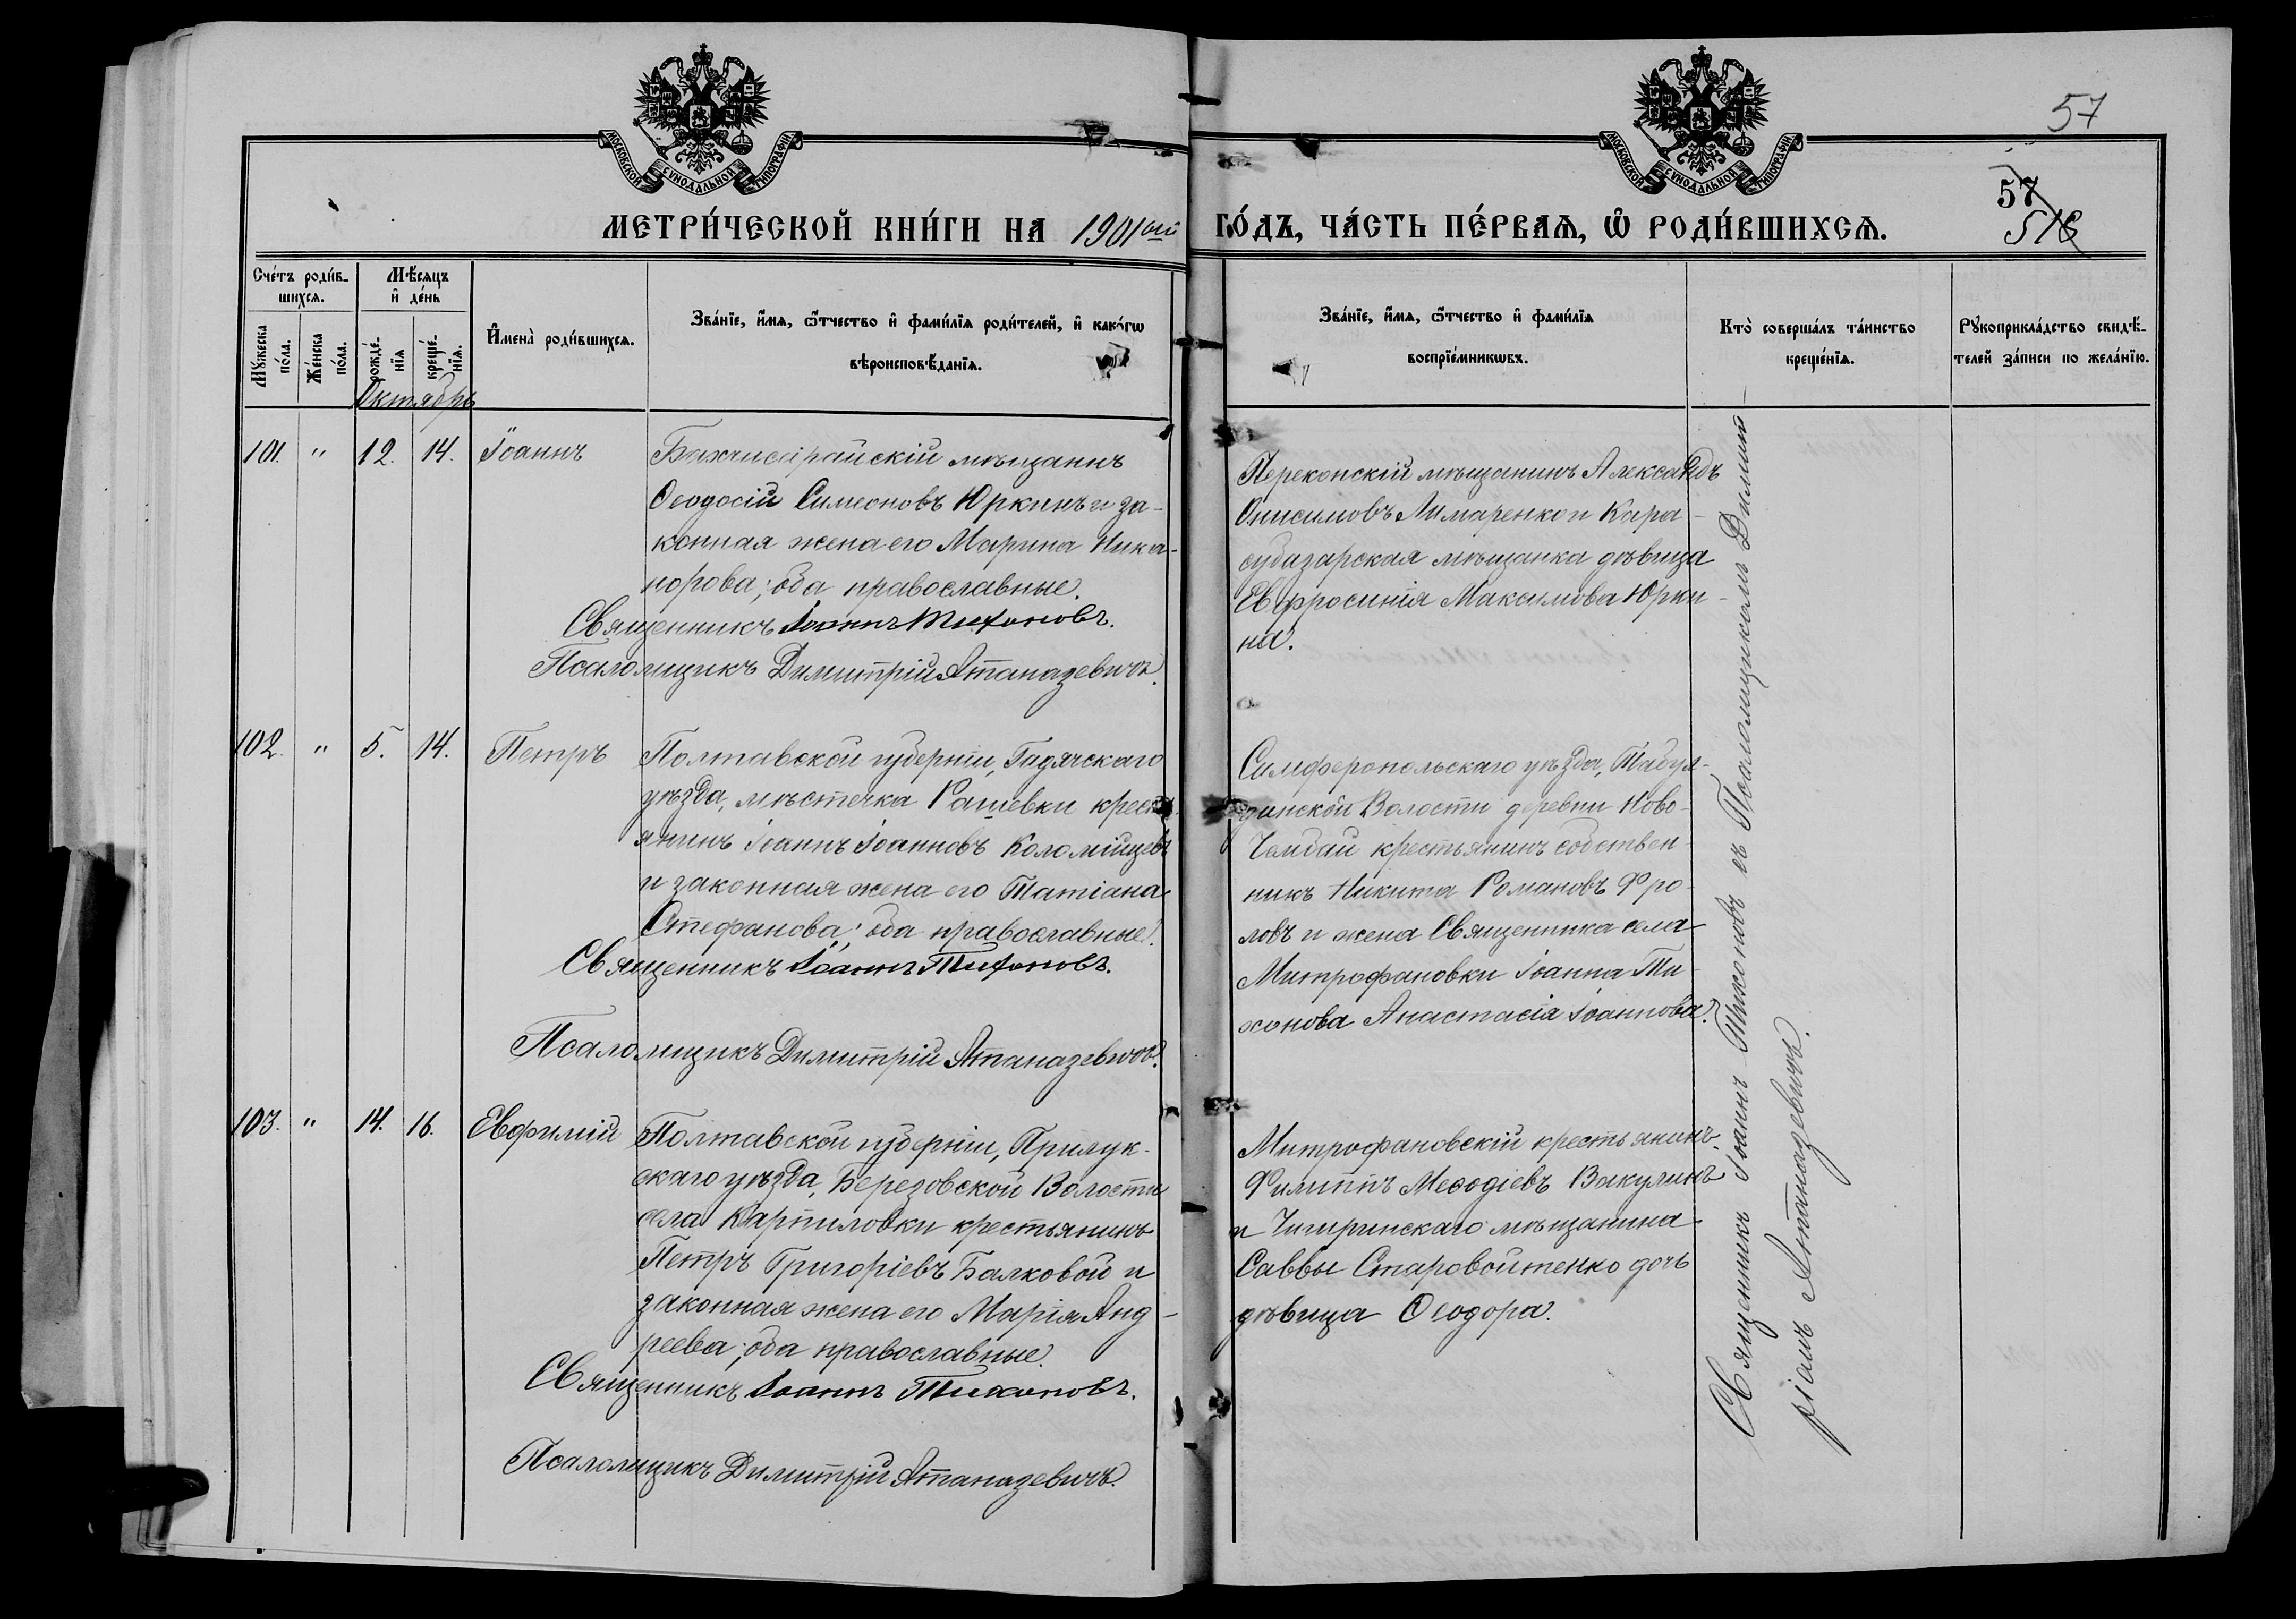 МОСКОВСКОЙ СѴНОДАЛЬНОЙ ТИПОГРАФІИ
МОСКОВСКОЙ СѴНОДАЛЬНОЙ ТИПОГРАФІИ
57
57
516
МЕТРИ́ЧЕСКОЙ КНИ́ГИ НА 1901ый ГО́ДЪ, ЧА́СТЬ ПЕ́РВАѦ, Ѽ РОДИ́ВШИХСѦ.
Сче́тъ роди́в-
шихсѧ.
Мѣ́сѧцъ
и҆ де́нь
Мꙋ́жеска
по́ла.
Же́нска
по́ла.
рожде́-
нїѧ
креще́-
нїѧ.
И҆мена̀ роди́вшихсѧ.
Зва́нїе, и҆́мѧ, ѻ҆́тчество и҆ фами́лїѧ роди́телей, и҆ како́гѡ
вѣроисповѣ́данїѧ.
Зва́нїе, и҆́мѧ, ѻ҆́тчество и҆ фами́лїѧ
воспрїе́мникѡвъ.
Кто̀ соверша́лъ та́инство
креще́нїѧ.
Рꙋкоприкла́дство свидѣ́-
телей за́писи по жела́нїю.
Октябрь
101. " 12. 14. Іоаннъ
Бахчисарайскій мѣщанинъ
Ѳеодосій Симеоновъ Юркинъ и за-
конная жена его Марина Ника-
норова; оба православные.
Священникъ Іоаннъ Тихоновъ.
Псаломщикъ Димитрій Атаназевичъ.
Перекопскій мѣщанинъ Александръ
Онисимовъ Лимаренко и Кара-
субазарская мѣщанка дѣвица
Евфросинія Максимова Юрки-
на.
102. " 5. 14. Петръ
Полтавской губерніи, Гадячскаго
уѣзда, мѣстечка Рашевки кресть-
янинъ Іоаннъ Іоанновъ Коломійцевъ
и законная жена его Татіана
Стефанова; оба православные.
Священникъ Іоаннъ Тихоновъ.
Псаломщикъ Димитрій Атаназевичъ.
Симферопольскаго уѣзда, Табул-
динской Волости деревни Ново-
Чембай крестьянинъ собствен-
никъ Никита Романовъ Фро-
ловъ и жена Священника села
Митрофановки Іоанна Ти-
хонова Анастасія Іоаннова.
103. " 14. 16. Евфимій
Полтавской губерніи, Прилук-
скаго уѣзда, Березовской Волости
села Карпиловки крестьянинъ
Петръ Григоріевъ Балковой и
законная жена его Марія Анд-
реева; оба православные.
Священникъ Іоаннъ Тихоновъ.
Псаломщикъ Димитрій Атаназевичъ.
Митрофановскій крестьянинъ
Филиппъ Меѳодіевъ Вакулинъ
и Чигиринскаго мѣщанина
Саввы Старовойтенко дочь
дѣвица Ѳеодора.
Священникъ Іоаннъ Тихоновъ съ Псаломщикомъ Димит-
ріемъ Атаназевичъ.